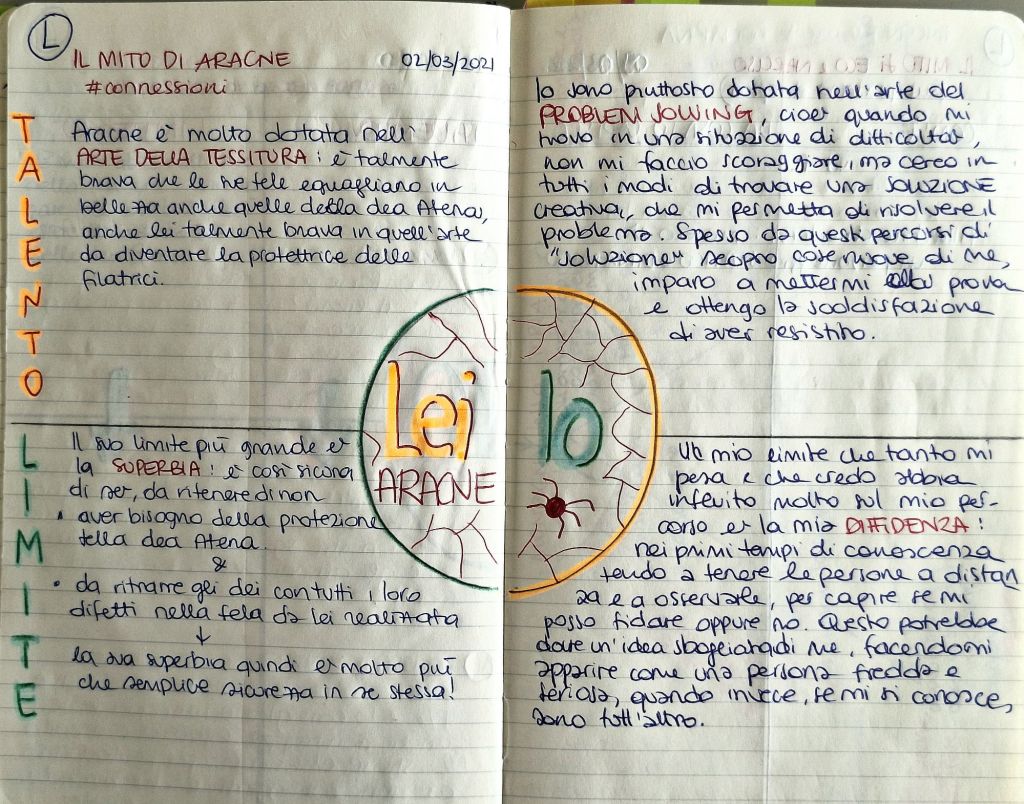 L
IL MITO DI ARACNE
02/03/2021
#connessioni
TALENTO
Aracne è molto dotata nell'
ARTE DELLA TESSITURA: è talmente
brava che le sue tele eguagliano in
bellezza anche quelle della dea Atena,
anche lei talmente brava in quell'arte
da diventare la protettrice delle
filatrici.
LIMITE
Il suo limite più grande è
la SUPERBIA: è così sicura
di sé, da ritenere di non
• aver bisogno della protezione
della dea Atena.
&
• da ritrarre gli dei con tutti i loro
difetti nella tela da lei realizzata
↓
la sua superbia quindi è molto più
che semplice sicurezza in se stessa!
Lei
ARACNE
Io sono piuttosto dotata nell'arte del
PROBLEM SOLVING, cioè quando mi
trovo in una situazione di difficoltà,
non mi faccio scoraggiare, ma cerco in
tutti i modi di trovare una SOLUZIONE
creativa, che mi permetta di risolvere il
problema. Spesso da questi percorsi di
"soluzione" scopro cose nuove di me,
imparo a mettermi alla prova
e ottengo la soddisfazione
di aver resistito.
Io
Un mio limite che tanto mi
pesa e che credo abbia
influito molto sul mio per-
corso è la mia DIFFIDENZA:
nei primi tempi di conoscenza
tendo a tenere le persone a distan
za e a osservarle, per capire se mi
posso fidare oppure no. Questo potrebbe
dare un'idea sbagliata di me, facendomi
apparire come una persona fredda e
seriosa, quando invece, se mi si conosce,
sono tutt'altro.